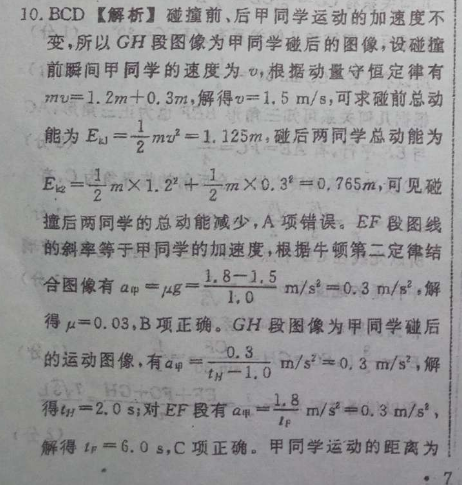 10. BCD 【解析】 碰撞前、后甲同学运动的加速度不
变,所以 GH 段图像为甲同学碰后的图像,设碰撞
前瞬间甲同学的速度为 v,根据动量守恒定律有
mv=1.2m+0.3m,解得v=1.5 m/s,可求碰前总动
能为 E_{k1}=\frac{1}{2}mv²=1.125m,碰后两同学总动能为
E_{k2}=\frac{1}{2}m×1.2²+\frac{1}{2}m×0.3²=0.765m,可见碰
撞后两同学的总动能减少,A 项错误。EF 段图线
的斜率等于甲同学的加速度,根据牛顿第二定律结
合图像有 a_甲=μg=\frac{1.8-1.5}{1.0} m/s²=0.3 m/s²,解
得 μ=0.03,B 项正确。GH 段图像为甲同学碰后
的运动图像,有a_甲=\frac{0.3}{t_H-1.0} m/s²=0.3 m/s²,解
得t_H=2.0 s;对 EF 段有 a_甲=\frac{1.8}{t_F} m/s²=0.3 m/s²,
解得 t_F=6.0 s,C 项正确。甲同学运动的距离为
· 7